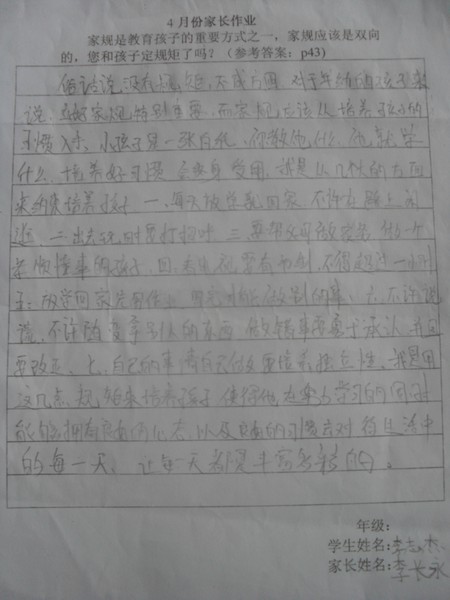 4月份家长作业
家规是教育孩子的重要方式之一，家规应该是双向
的，您和孩子定规矩了吗？（参考答案：p43）
俗话说没有规矩，不成方圆，对于年幼的孩子来
说，好家规特别重要，而家规应该从培养孩子的
习惯入手，小孩子是一张白纸，你教他什么，他就是
什么，培养好习惯会终身受用，我是从几点的方面
来约束培养孩子 一、每天放学就回家，不许在路上闲
逛、二出去玩时要打招呼 三、要帮父母做家务 做一个
孝顺懂事的孩子，四、看电视要有节制，不得超过一小时
五、放学回家先写作业，再完才能做别的事，六、不许说
谎，不许随变拿别人的东西，做错事要勇于承认，并且
要改正、七、自己的事情自己做，要培养独立性，我是用
这几点 规矩来培养孩子 使得他在努力学习的同时
能够拥有良好的心态，以及良好的习惯去对待生活中
的每一天，让每一天都是丰富多彩的。
年级：
学生姓名:李志杰
家长姓名:李长永